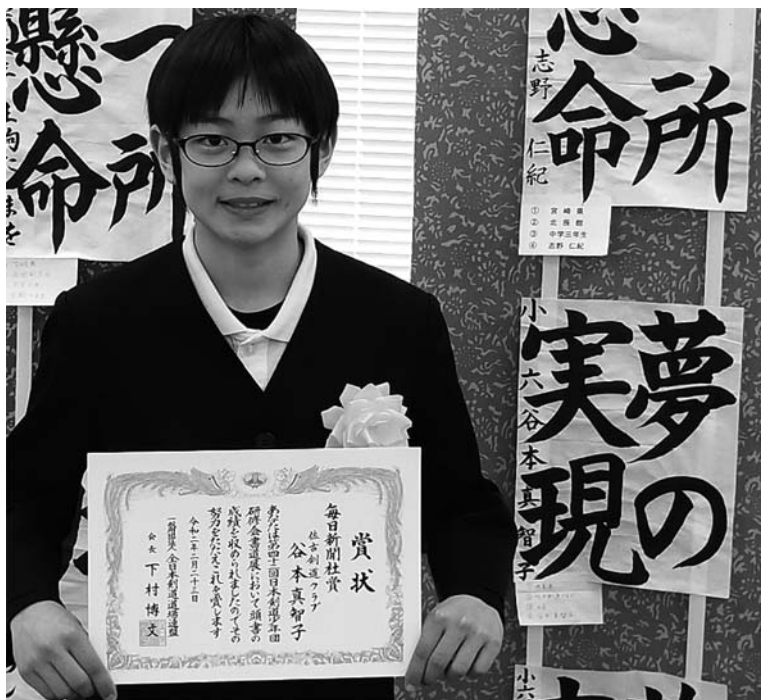 一
懸
命
所
命
所
志野
仁紀
① 宮崎県
② 北辰館
③ 中学三年生
④ 志野 仁紀
夢の
実現
小六 谷本真智子
賞状
毎日新聞社賞
佐古剣道クラブ
谷本真智子
あなたは第四十二回日本剣道少年団
研修会書道展において頭書の
成績を収められましたのでその
努力をたたえこれを賞します
令和二年二月二十三日
一般財団法人全日本剣道道場連盟
会長 下村博文
小六